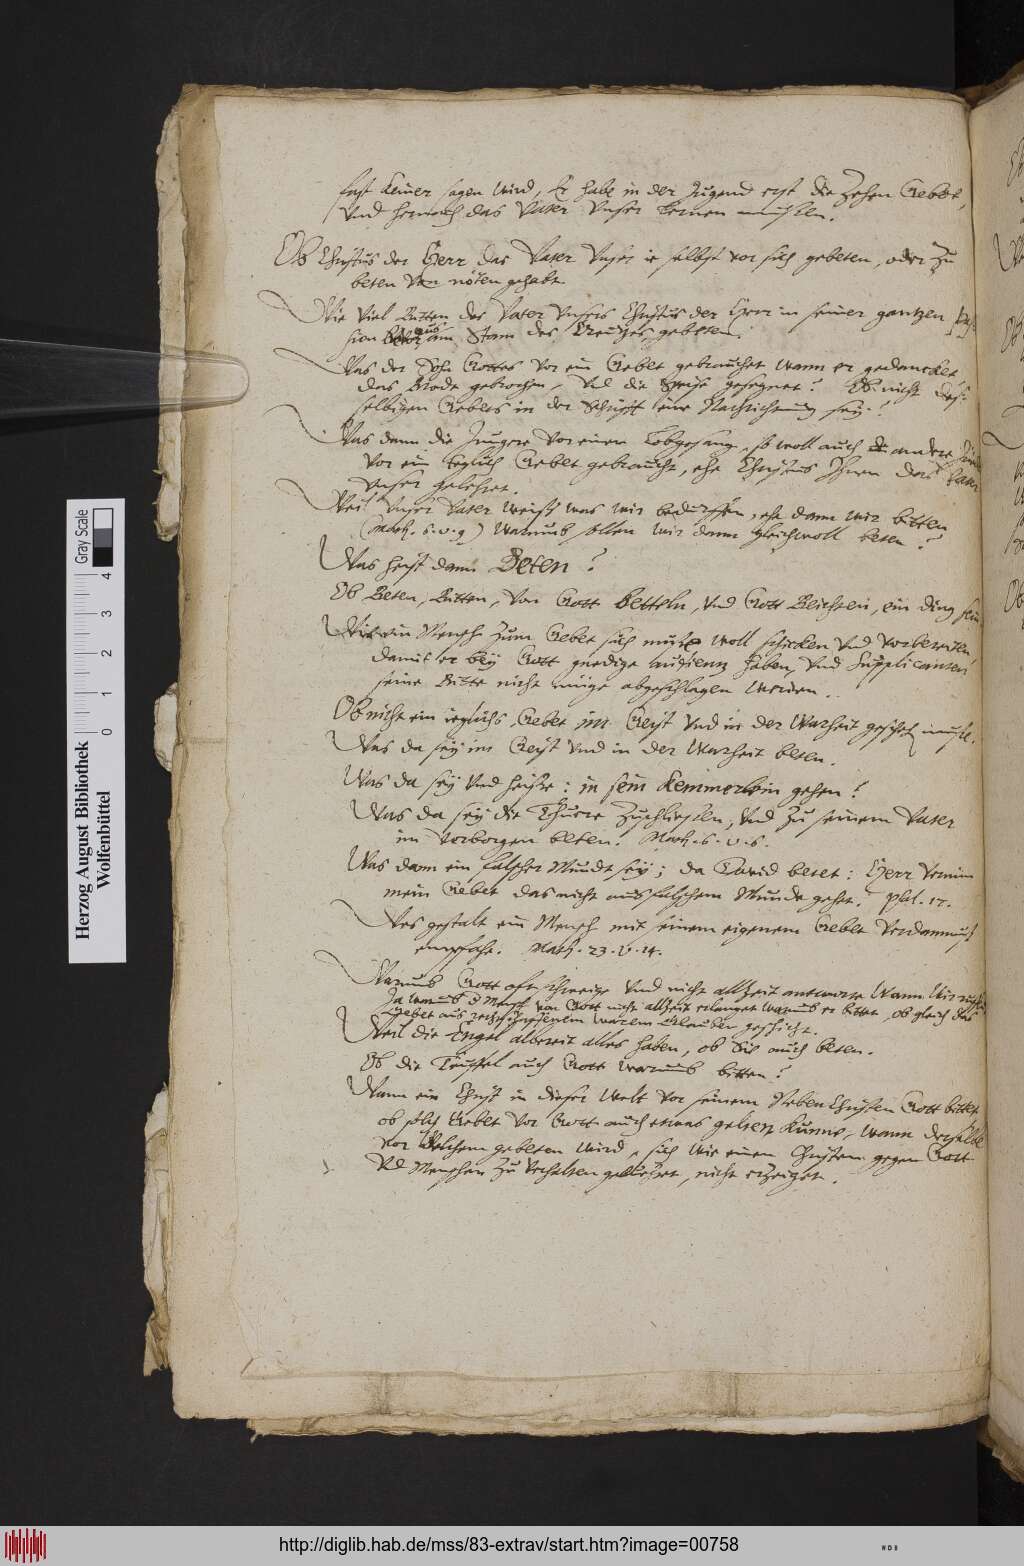 fast keiner sagen wird, Er habe in der Jugend erst die Zehen Gebot,
vnd hernach das Vater vnser lernen müssen.
Ob Christus der Herr das Vater vnser ie selbst vor sich gebeten, oder zu
beten von nöten gehabt
Wie viel Bitten des Vater vnsers Christus der Herr in seiner gantzen
sion am Stam des Creutzes gebeten.
Was der Sohn Gottes vor ein Gebet gebrauchet wann er gedancket
das Brodt gebrochen, vnd die Speise gesegnet? Ob nicht des-
selbigen Gebets in der Schrifft eine Nachrichtung sey?
Was dann die Jungere vor einen Lobgesang, so woll auch andere
vor ein teglich Gebet gebraucht, ehe Christus Ihnen das Vater
vnser gelehret.
Weil vnser Vater weiss was wir bedurffen, ehe dann wir bitten
(Math. 6. v. 9) warumb sollen wir dann gleichwoll beten?
Was heist dann Beten?
Ob Beten, Bitten, von Gott betteln, vnd Gott Beichten, ein ding sein
Wie ein Mensch zum Gebet sich müste woll schicken vnd vorbereiten
damit er bey Gott gnedige audientz haben, vnd Supplicanten
seine Bitte nicht müge abgeschlagen werden.
Ob nicht ein ieglichs Gebet im Geist vnd in der Warheit geschehen müste.
Was da sey im Geist vnd in der Warheit beten.
Was da sey vnd heisse: in sein Kemmerlein gehen?
Was da sey die Thurre zuschliessen, vnd zu seinem Vater
im vorborgen beten. Math. 6. v. 6.
Was dann ein falscher Mundt sey; da David betet: Herr vernim
mein Gebet das nicht aus falschem Munde gehet. Psal. 17.
Wes gestalt ein Mensch mit seinem eigenem Gebet verdamnuss
empfahe. Math. 23. v. 14.
Warumb Gott oft schweige vnd nicht allzeit antworte wann wir
Ja warumb d Mensch von Gott nicht allzeit erlanget warumb er bittet, ob gleich das
Gebet aus rechtschaffenem warem Glauben geschicht.
Weil die Engel albereit alles haben, ob Sie auch beten.
Ob die Teuffel auch Gott warumb bitten?
Wann ein Christ in dieser Welt vor seinem Neben Christen Gott bittet
ob solch Gebet vor Gott auch etwas gelten kunne, wann derselbe
vor welchem gebeten wird, sich wie einem Christen gegen Gott
vnd Menschen zu verhalten gebüret, nicht erzeiget.
Herzog August Bibliothek
Wolfenbüttel
0 1 2 3 4
Gray Scale
http://diglib.hab.de/mss/83-extrav/start.htm?image=00758